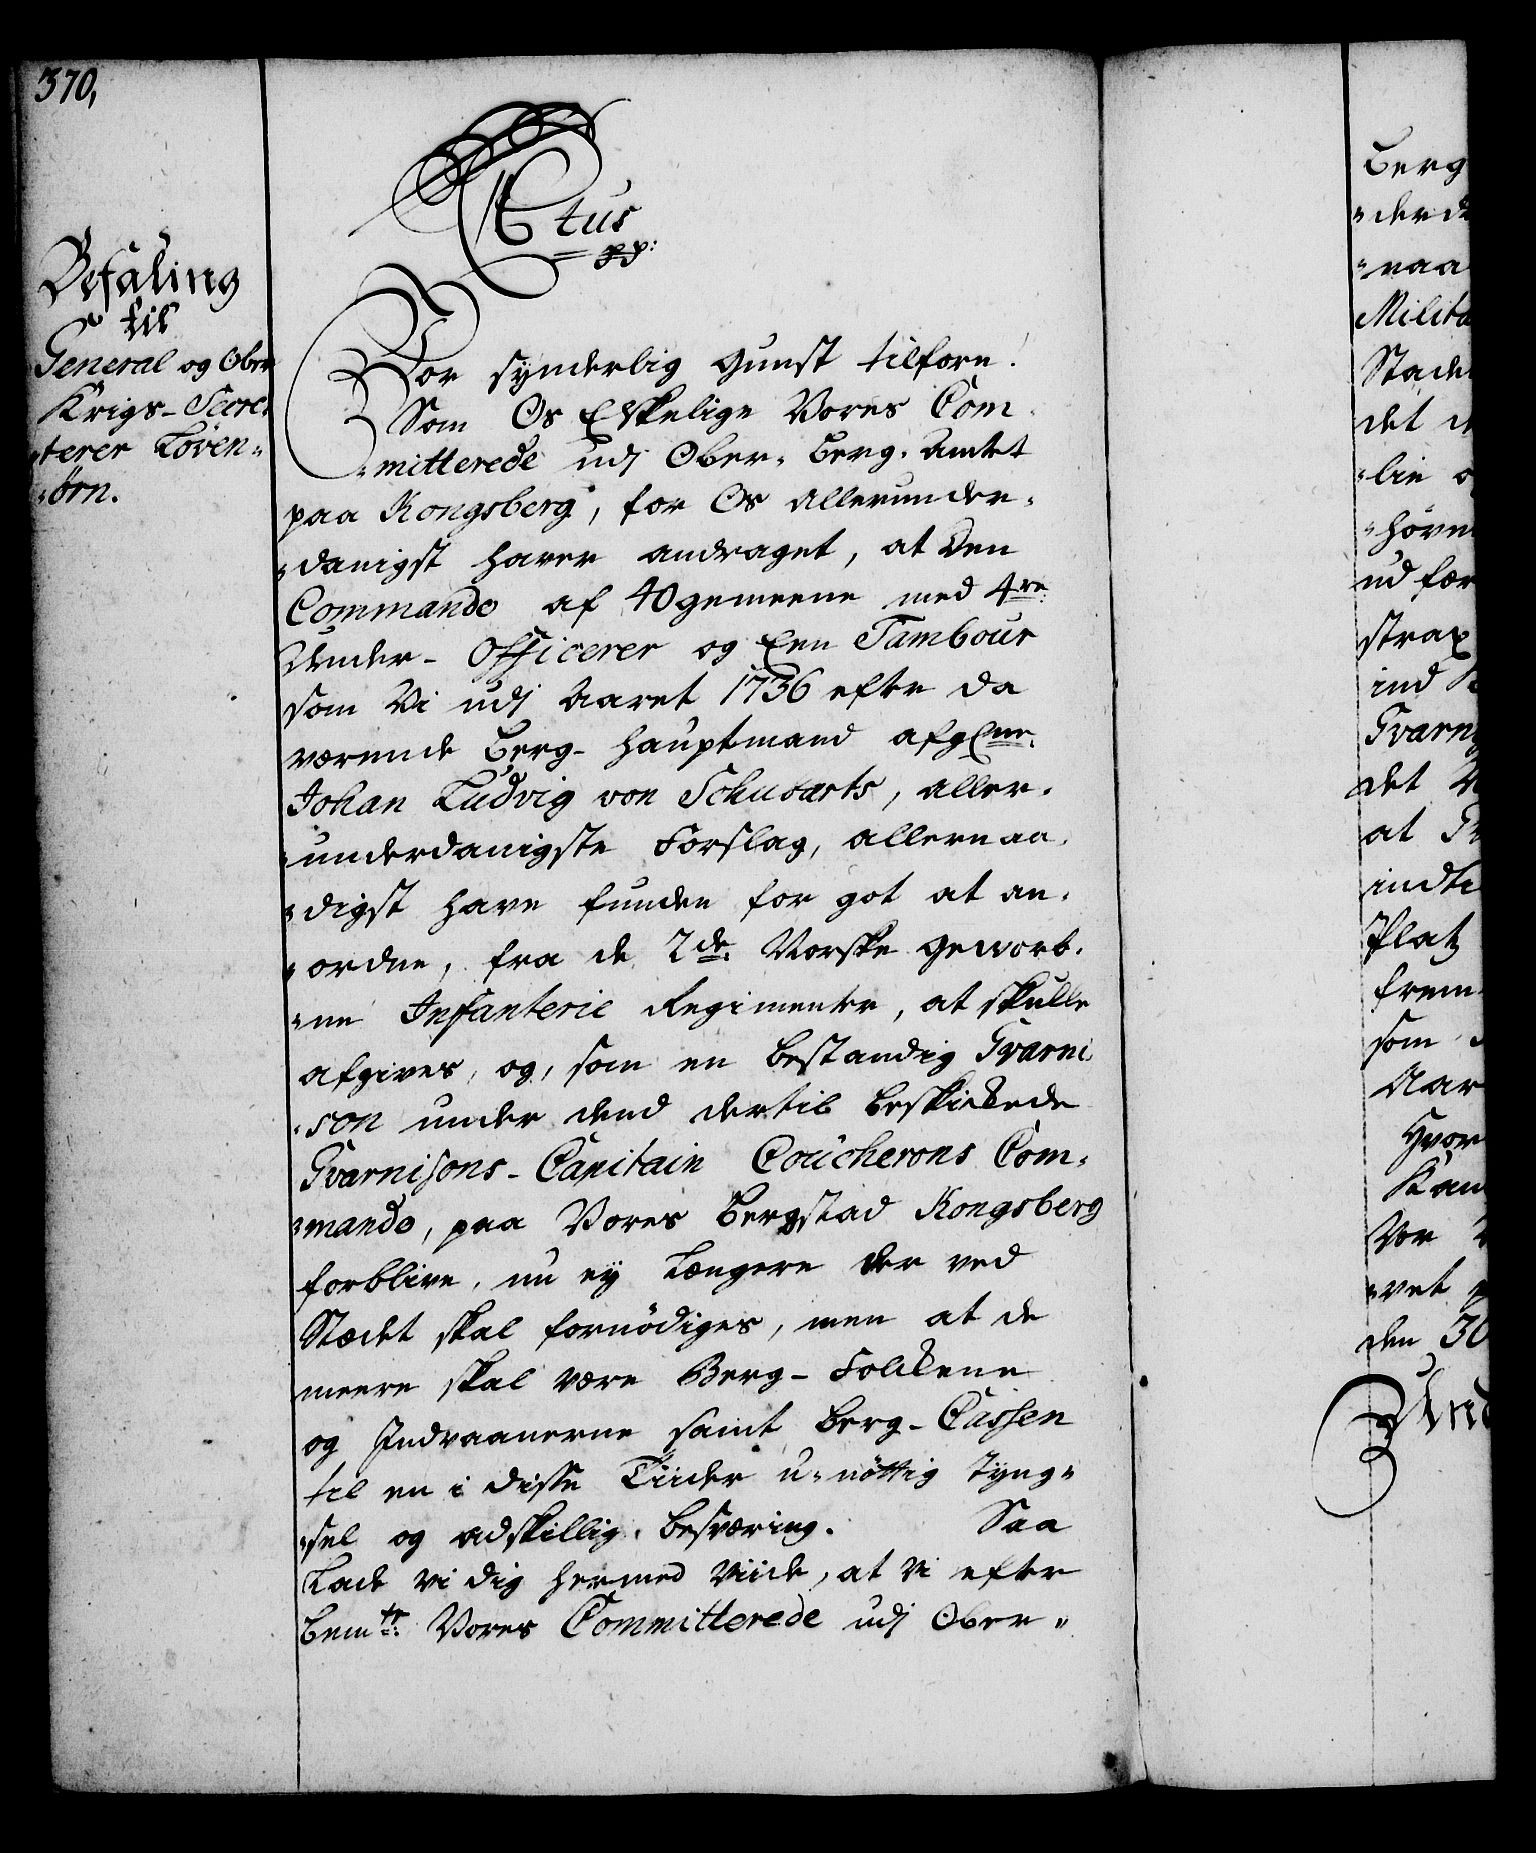 370,
Befaling
til
General og Ober
Krigs-Secre
terer Löven-
-örn.
CVItus
pp:
Vor synderlig Gunst tilforn!
Som Os Elskelige Vores Com-
-mitterede udj Ober-Berg-Amtet
paa Kongsberg, for Os allerunder-
-danigst haver andraget, at den
Commando af 40 gemeene med 4re
Under-Officerer og Een Tambour
som Vi udj Aaret 1736 efter da
værende Berg-Hauptmand afgEne.
Johan Ludvig von Schubarts, aller-
-underdanigste Forslag, allernaa-
-digst have funden for got at an-
-ordne, fra de 2de Norske geworb-
-ne Infanterie Regimenter, at skulle
afgives, og, som en bestandig Gvarni
-son under dend dertil beskickede
Gvarnisons-Capitain Coucherons Com-
-mando, paa Vores Bergstad Kongsberg
forblive, nu ey længere der ved
Stædet skal fornödiges, men at de
meere skal være Berg-Folckene
og Indvaanerne samt Berg-Cassen
til en i disse Tiider u-nöttig Tyng-
-sel og adskillig besværing. Saa
Lade Vi dig hermed Viide, at Vi efter
bemte: Vores Committerede udj Ober-
Berg
-der
-naa
Milita
Stade
det
-lie
-höve
ud fær
strax
ind
Gvarni
det
at
indti
Platz
frem
som
Aar
Hvor
Kan
Vor
-vet
den 30